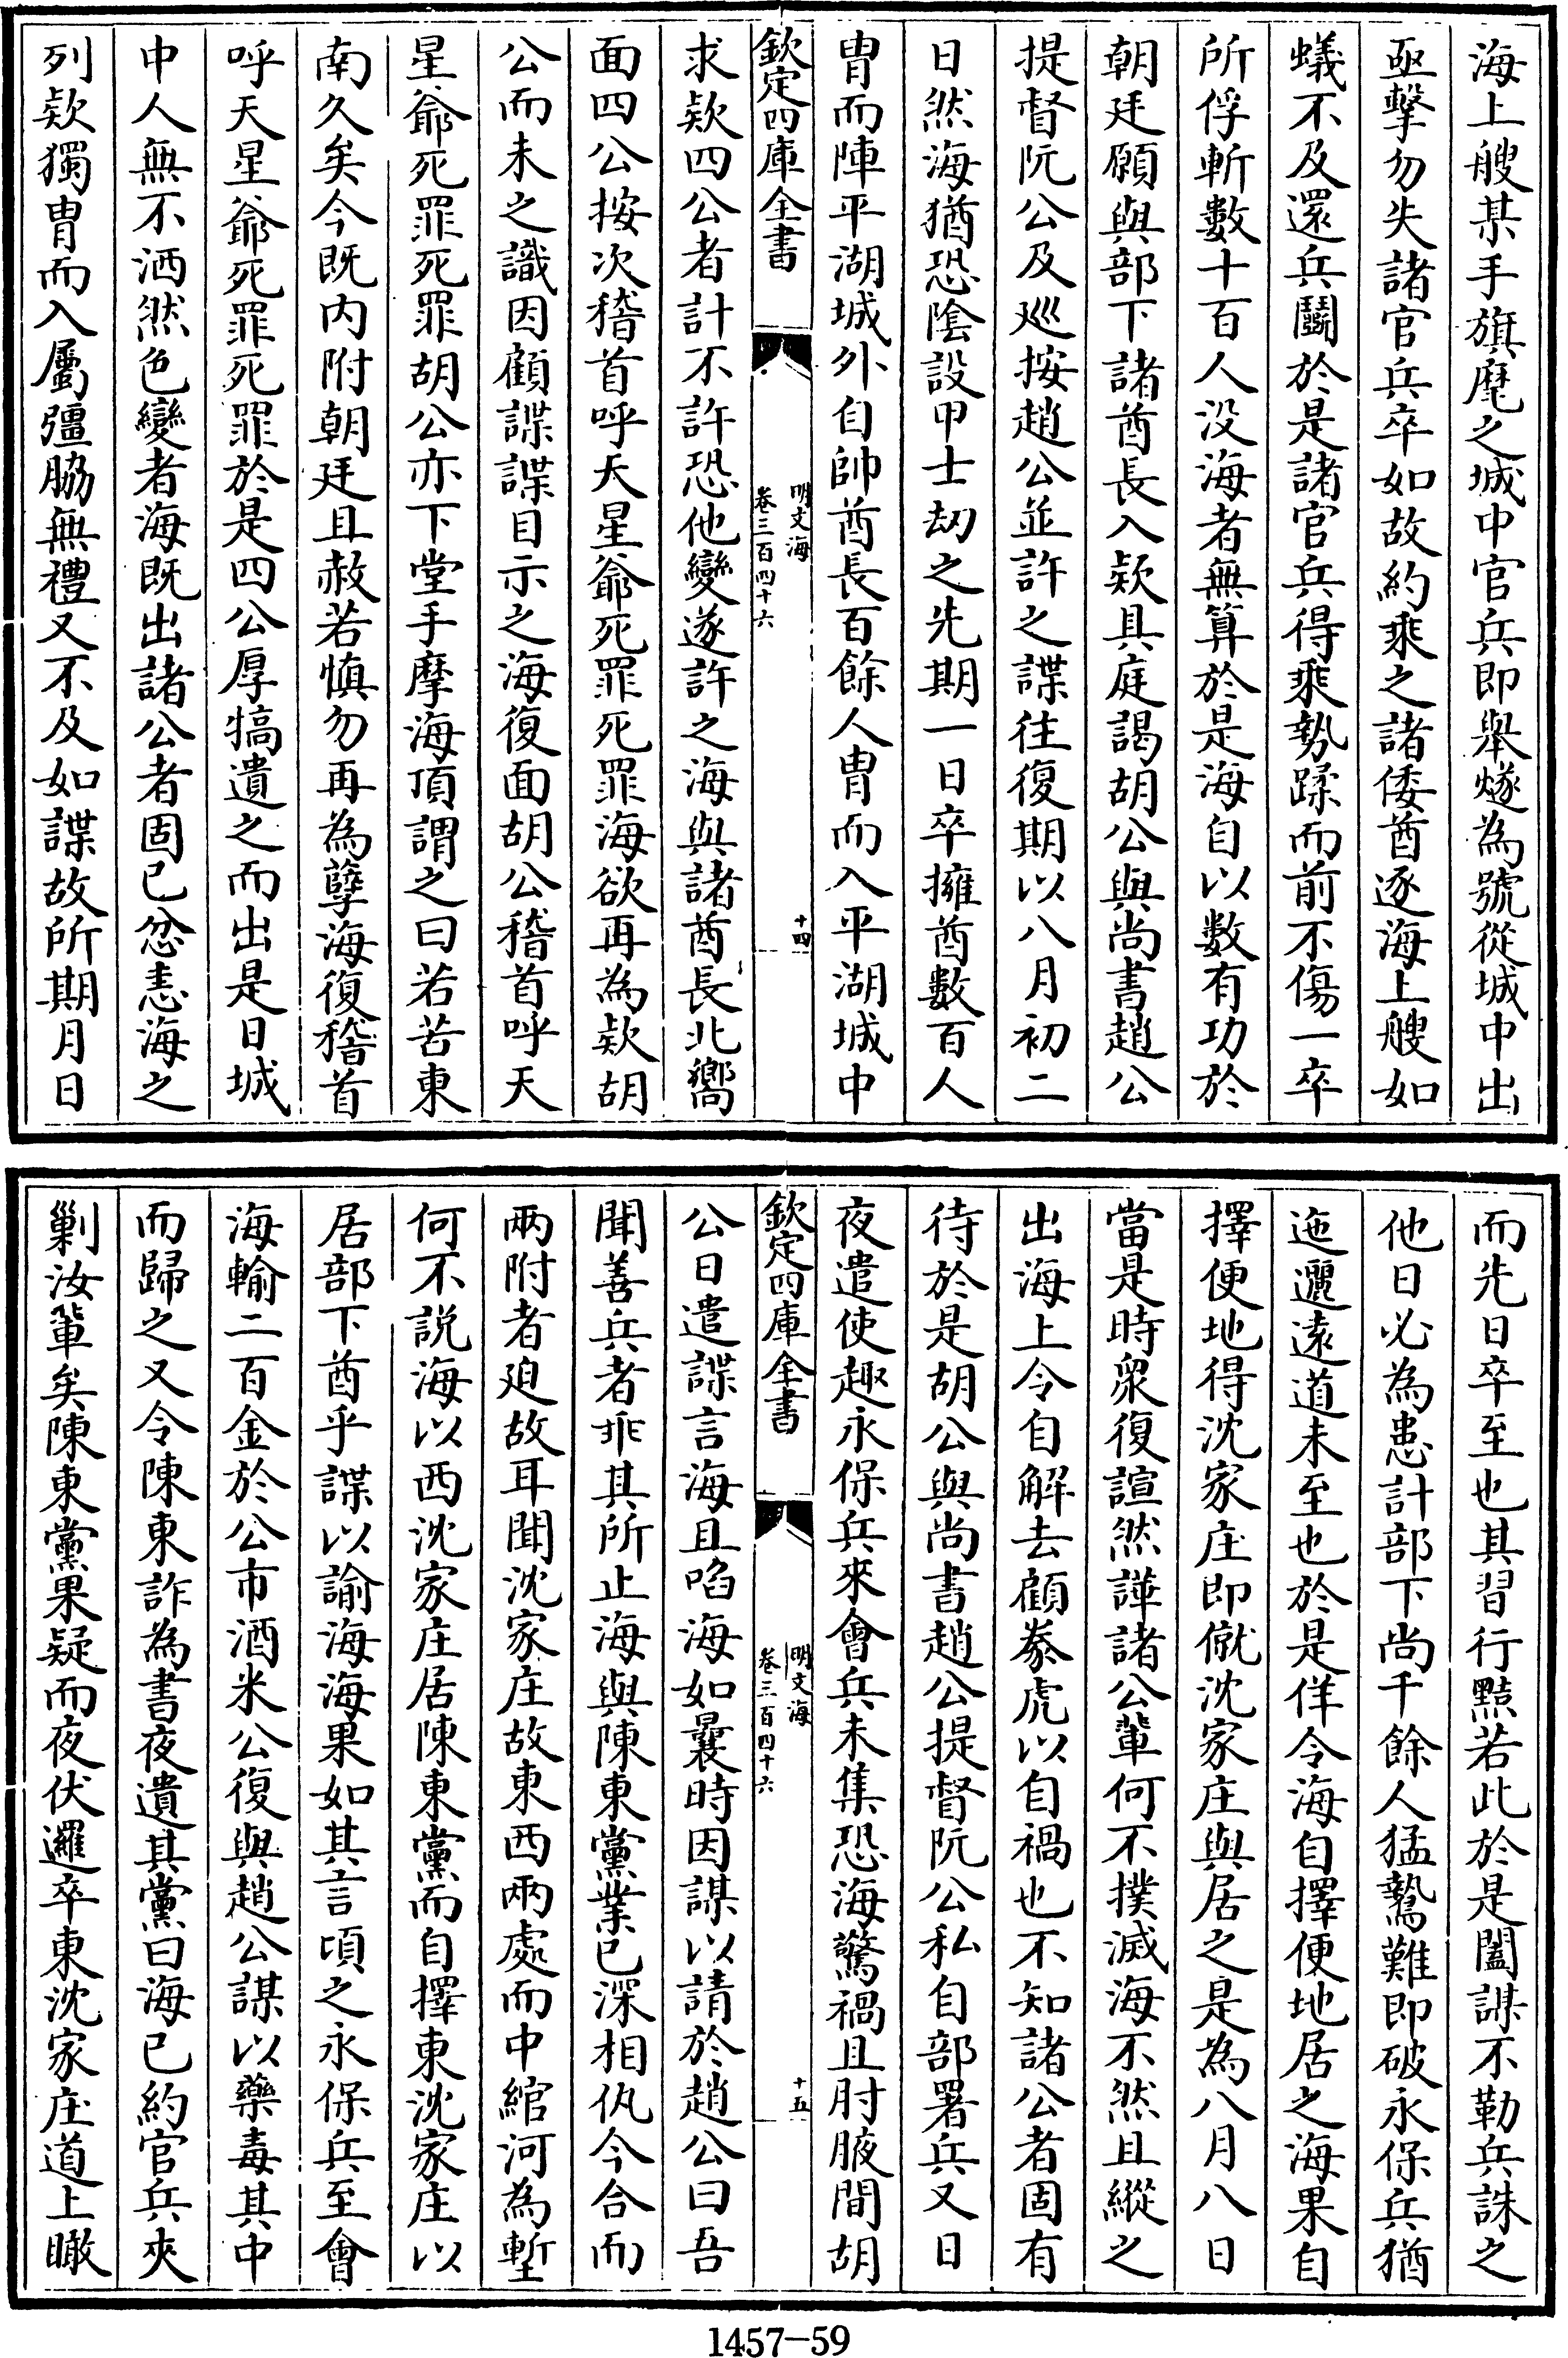 海上艘某手旗麾之城中官兵即舉燧為號從城中出
亟擊勿失諸官兵卒如故約乘之諸倭酋逐海上艘如
蟻不及還兵鬭於是諸官兵得乘勢蹂而前不傷一卒
所俘斬數十百人没海者無算於是海自以數有功於
朝廷願與部下諸酋長入欵具庭謁胡公與尚書趙公
提督阮公及廵按趙公並許之諜往復期以八月初二
日然海猶恐隂設甲士刼之先期一日卒擁酋數百人
胄而陣平湖城外自帥酋長百餘人胄而入平湖城中
欽定四庫全書
明文海
卷三百四十六
十四
求欵四公者計不許恐他變遂許之海與諸酋長北嚮
面四公按次稽首呼天星爺死罪死罪海欲再為欵胡
公而未之識因顧諜諜目示之海復面胡公稽首呼天
星爺死罪死罪胡公亦下堂手摩海頂謂之曰若苦東
南久矣今既内附朝廷且赦若慎勿再為孽海復稽首
呼天星爺死罪死罪於是四公厚犒遺之而出是日城
中人無不洒然色變者海既出諸公者固已忿恚海之
列欵獨胄而入屬彊脇無禮又不及如諜故所期月日
而先日卒至也其習行黠若此於是闔謀不勒兵誅之
他日必為患計部下尚千餘人猛鷙難即破永保兵猶
迤邐遠道未至也於是佯令海自擇便地居之海果自
擇便地得沈家庄即僦沈家庄與居之是為八月八日
當是時衆復諠然譁諸公輩何不撲滅海不然且縱之
出海上令自解去顧豢虎以自禍也不知諸公者固有
待於是胡公與尚書趙公提督阮公私自部署兵又日
夜遣使趣永保兵來會兵未集恐海驚禍且肘腋間胡
欽定四庫全書
明文海
卷三百四十六
十五
公日遣諜言海且啗海如曩時因謀以請於趙公曰吾
聞善兵者乖其所止海與陳東黨業已深相仇今合而
兩附者廹故耳聞沈家庄故東西兩處而中綰河為塹
何不説海以西沈家庄居陳東黨而自擇東沈家庄以
居部下酋乎諜以諭海海果如其言頃之永保兵至會
海輸二百金於公市酒米公復與趙公謀以藥毒其中
而歸之又令陳東詐為書夜遺其黨曰海已約官兵夾
剿汝輩矣陳東黨果疑而夜伏邏卒東沈家庄道上瞰
1457-59